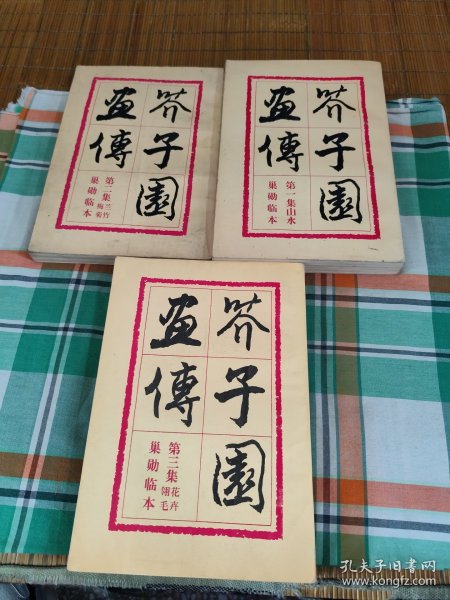 芥子園
画傳
第二集兰竹梅菊
巢勋临本
芥子園
画傳
第一集山水
巢勋临本
芥子園
画傳
第三集花卉翎毛
巢勋临本
孔夫子旧书网
www.kongfz.com